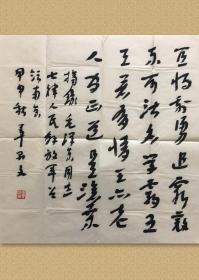 宜将剩勇追穷寇
不可沽名学霸王
天若有情天亦老
人间正道是沧桑
摘录毛泽东同志
七律人民解放军占
领南京
甲申秋